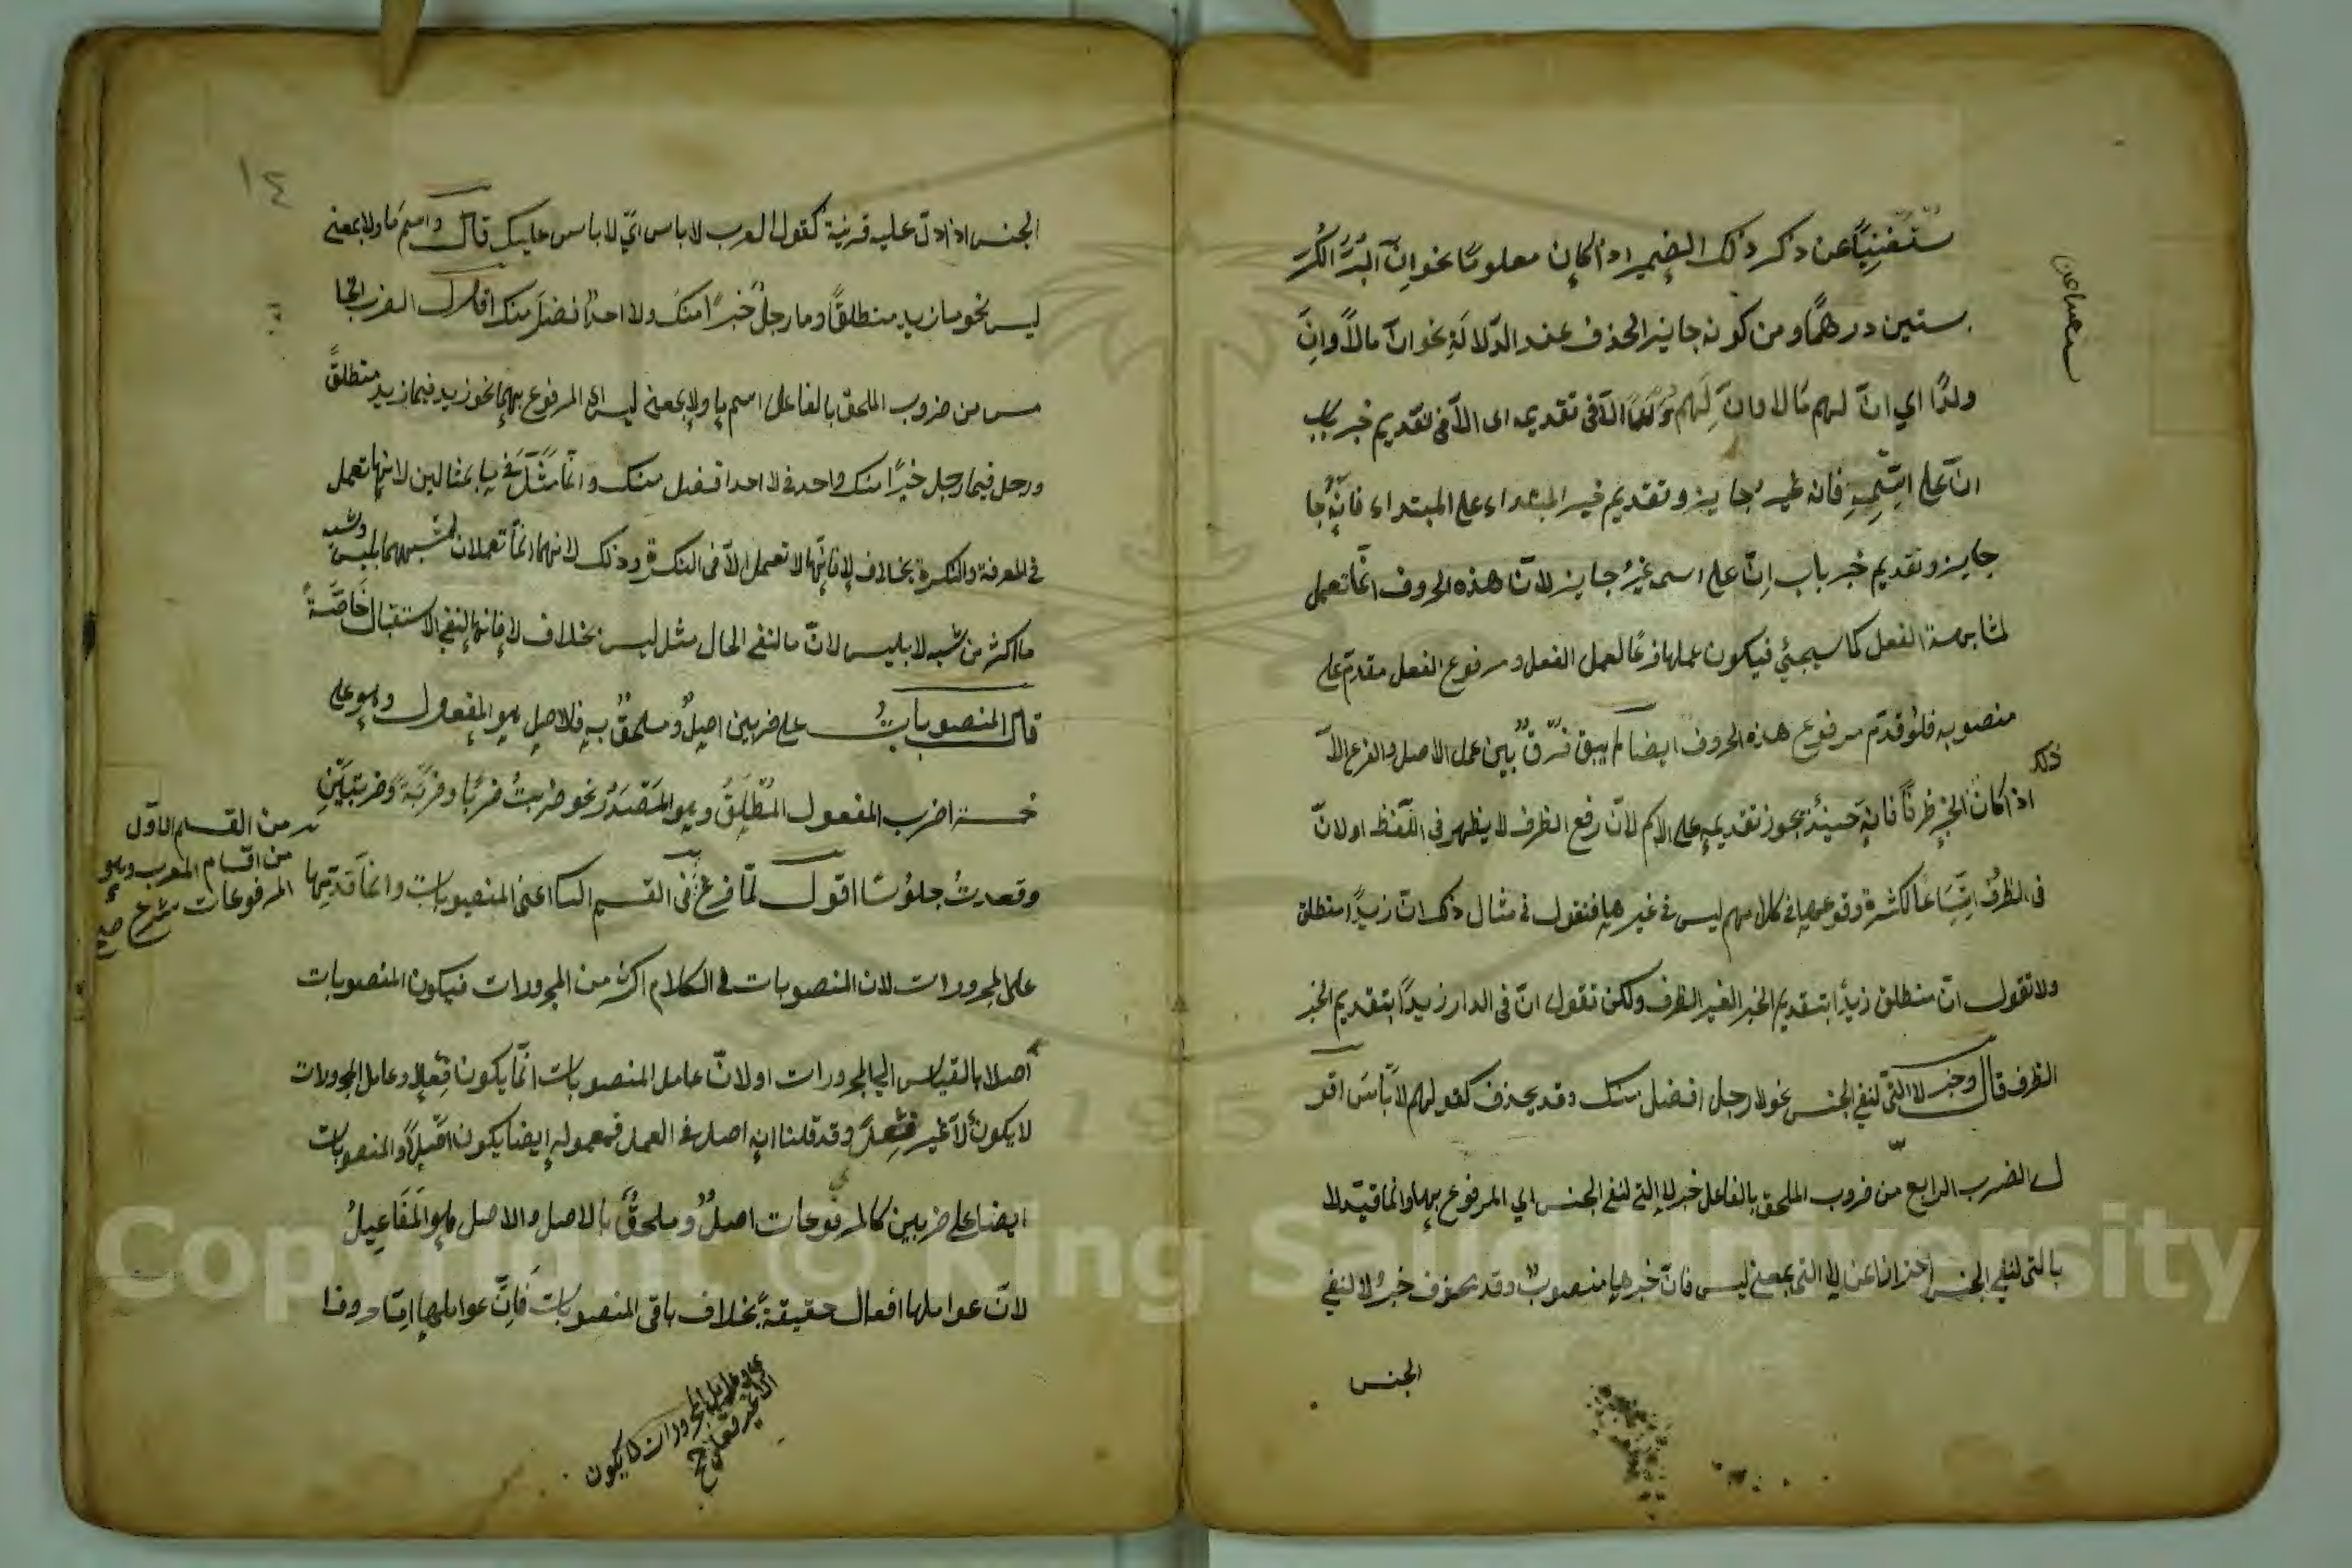 ستغنيًا عن ذكر ذلك الضمير اذا كان معلومًا نحو انّ البُرَّ الكُرَّ
ستين درهمًا ومن كونه جايز الحذف عند الدّلالة نحو انّ مالًا وانّ
ولدًا اي انّ لهم مالا وانّ لهم ولدًا الّا في تقديمه اى الّا فى تقديم خبر باب
انّ على اسمه فانه غير جايز وتقديم خبر المبتداء على المبتداء فانّه جا
جايز وتقديم خبر باب انّ على اسمه غيرُ جايز لانّ هذه الحروف انّما تعمل
لمشابهة الفعل كما سيجئ فيكون عملها فرعًا لعمل الفعل ومرفوع الفعل مقدم على
منصوبه فلو قدّم مرفوع هذه الحروف ايضا لم يبق فرقٌ بين عمل الاصل والفرع الّا
اذا كان الخبر ظرفًا فانه حينئذ يجوز تقديمه على الاسم لانّ رفع الظرف لا يظهر فى اللّفظ او لانّ
فى الظرف اتساعًا لكثرة وقوعها فى كلامهم ليس فى غيرها فنقول فى مثال ذلك انّ زيدًا منطلق
ولا نقول انّ منطلق زيدًا بتقديم الخبر الغير الظرف ولكن نقول انّ فى الدار زيدًا بتقديم الخبر
الظرف قال وخبر لا التى لنفى الجنس نحو لا رجل افضل منك وقد يحذف كقولهم لا بأس اقو
ل الضرب الرابع من ضروب الملحق بالفاعل خبر لا التى لنفى الجنس اي المرفوع بها وانما قيّد لا
بالتى لنفى الجنس احترازا عن لا التى بمعنى ليس فانّ خبرها منصوبٌ وقد يحذف خبرُ لا لنفى
الجنس
الجنس اذا دلّ عليه قرينة كقول العرب لا باس اىّ لا باس عليك قال واسم ما ولا بمعنى
ليس نحو ما زيد منطلقًا وما رجلٌ خيرًا منك ولا احدٌ افضل منك اقول الضرب الخا
مس من ضروب الملحق بالفاعل اسم ما ولا بمعنى ليس اى المرفوع بهما نحو زيد فيما زيد منطلقًا
ورجل فيما رجل خيرًا منك واحد فى لا احد افضل منك وانّما مثّل فى ما بمثالين لانها تعمل
فى المعرفة والنكرة بخلاف لا فانّها لا تعمل الّا فى النكرة وذلك لانهما انّما تعملان لمشبههما بليس وشبه
ما اكثر من شبه لا بليس لانّ ما لنفى الحال مثل ليس بخلاف لا فانها لنفى الاستقبال خاصّةً
قال المنصوبات على ضربين اصلٌ وملحقٌ به فالاصل هو المفعول وهو على
خمسة اضرب المفعول المطلق وهو المصدر نحو ضربتُ ضربًا وضربةً وضربتين
وقعدتُ جلوسًا اقول لمّا فرغ شرع فى القسم الثا اعنى المنصوبات وانما قدّمها
من القسم الاول
من اقسام المعرب وهو
المرفوعات شرع صح
على المجرورات لان المنصوبات فى الكلام اكثر من المجرورات فيكون المنصوبات
أصلا بالقياس الى المجرورات او لانّ عامل المنصوبات انّما يكون فعلا وعامل المجرورات
لا يكون الّا غير فعل وقد قلنا انه اصل فى العمل فمعموله ايضا يكون اصلًا والمنصوبات
ايضا على ضربين كالمرفوعات اصلٌ وملحقٌ بالاصل والاصل هو المفاعيلُ
لانّ عواملها افعال حقيقةً بخلاف باقى المنصوبات فانّ عواملها امّا حروفا
وعامل المجرورات لا يكون
الا غير فعل صح